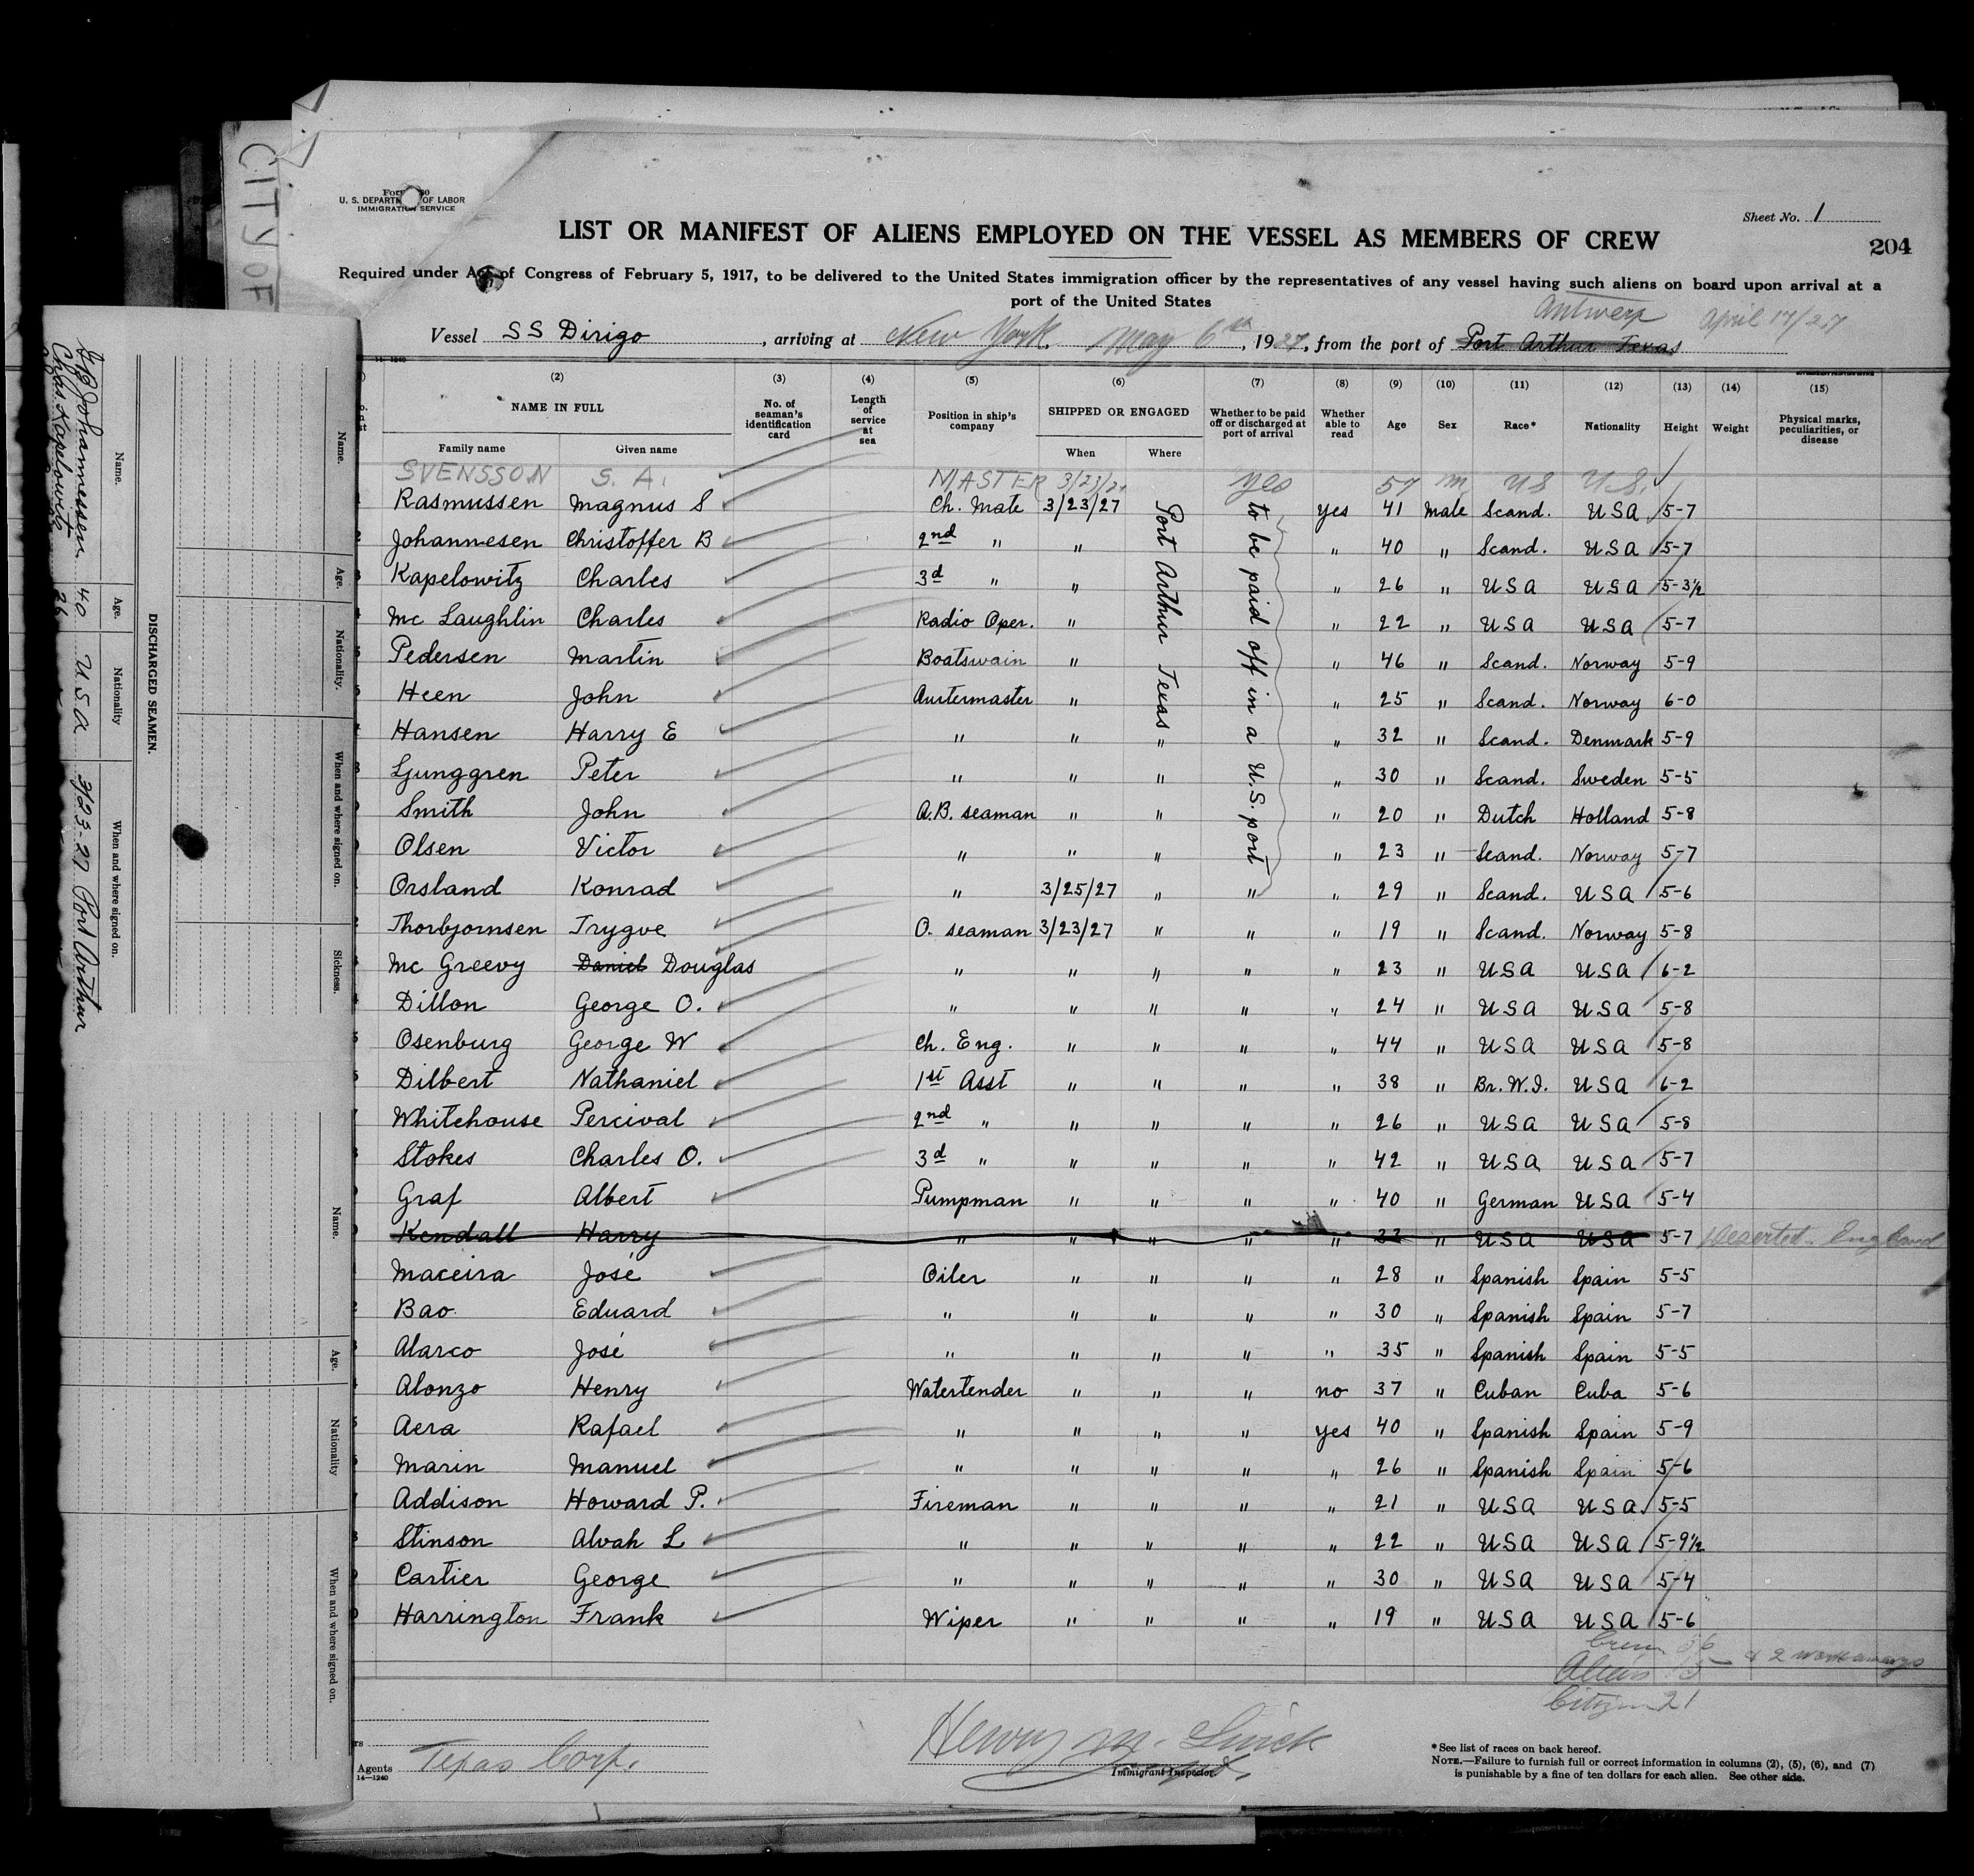 CITY OF
U. S. DEPARTMENT OF LABOR
IMMIGRATION SERVICE
Sheet No. 1
LIST OR MANIFEST OF ALIENS EMPLOYED ON THE VESSEL AS MEMBERS OF CREW
204
Required under Act of Congress of February 5, 1917, to be delivered to the United States immigration officer by the representatives of any vessel having such aliens on board upon arrival at a
port of the United States
Antwerp April 17/27
Vessel SS Dirigo, arriving at New York, May 6th, 1927, from the port of Port Arthur Texas
14-1240
(2) (3) (4) (5) (6) (7) (8) (9) (10) (11) (12) (13) (14) (15)
NAME IN FULL No. of seaman's identification card Length of service at sea Position in ship's company SHIPPED OR ENGAGED Whether to be paid off or discharged at port of arrival Whether able to read Age Sex Race* Nationality Height Weight Physical marks, peculiarities, or disease
Family name Given name When Where
SVENSSON S. A. MASTER 3/23/2 yes 57 m US U.S.
Rasmussen Magnus S Ch. Mate 3/23/27 Port Arthur Texas to be paid off in a U.S. port yes 41 Male Scand. USA 5-7
Johannesen Christoffer B 2nd " " " 40 " Scand. USA 5-7
Kapelowitz Charles 3d " " " 26 " USA USA 5-3½
Mc Laughlin Charles Radio Oper. " " 22 " USA USA 5-7
Pedersen Martin Boatswain " " 46 " Scand. Norway 5-9
Heen John Qurtermaster " " 25 " Scand. Norway 6-0
Hansen Harry E " " " " 32 " Scand. Denmark 5-9
Ljunggren Peter " " " " 30 " Scand. Sweden 5-5
Smith John A.B. seaman " " " 20 " Dutch Holland 5-8
Olsen Victor " " " " 23 " Scand. Norway 5-7
Orsland Konrad " 3/25/27 " " " 29 " Scand. USA 5-6
Thorbjornsen Trygve O. seaman 3/23/27 " " " 19 " Scand. Norway 5-8
Mc Greevy Daniel Douglas " " " " " 23 " USA USA 6-2
Dillon George O. " " " " " 24 " USA USA 5-8
Osenburg George W Ch. Eng. " " " " 44 " USA USA 5-8
Dilbert Nathaniel 1st Asst " " " " 38 " Br. W. I. USA 6-2
Whitehouse Percival 2nd " " " " " 26 " USA USA 5-8
Stokes Charles O. 3d " " " " " 42 " USA USA 5-7
Graf Albert Pumpman " " " " 40 " German USA 5-4
Kendall Harry " " " " " 32 " USA USA 5-7 Deserted England
Maceira José Oiler " " " " 28 " Spanish Spain 5-5
Bao Eduard " " " " " 30 " Spanish Spain 5-7
Alarco José " " " " " 35 " Spanish Spain 5-5
Alonzo Henry Watertender " " " no 37 " Cuban Cuba 5-6
Aera Rafael " " " " yes 40 " Spanish Spain 5-9
Marin Manuel " " " " " 26 " Spanish Spain 5-6
Addison Howard P. Fireman " " " " 21 " USA USA 5-5
Stinson Alvah L " " " " " 22 " USA USA 5-9½
Cartier George " " " " " 30 " USA USA 5-4
Harrington Frank Wiper " " " " 19 " USA USA 5-6
Crew 36
Aliens 15 & 2 workaways
Citizen 21
Agents Texas Corp.
14-1240
Henry M.
Immigrant Inspector.
*See list of races on back hereof.
NOTE.—Failure to furnish full or correct information in columns (2), (5), (6), and (7)
is punishable by a fine of ten dollars for each alien. See other side.
DISCHARGED SEAMEN.
Name. Age. Nationality When and where signed on.
Johannessen 40 U S A 3/23-27 Port Arthur
Chas Kapelowitz 26
Name. Age. Nationality. When and where signed on. Sickness.
Name. Age. Nationality When and where signed on.